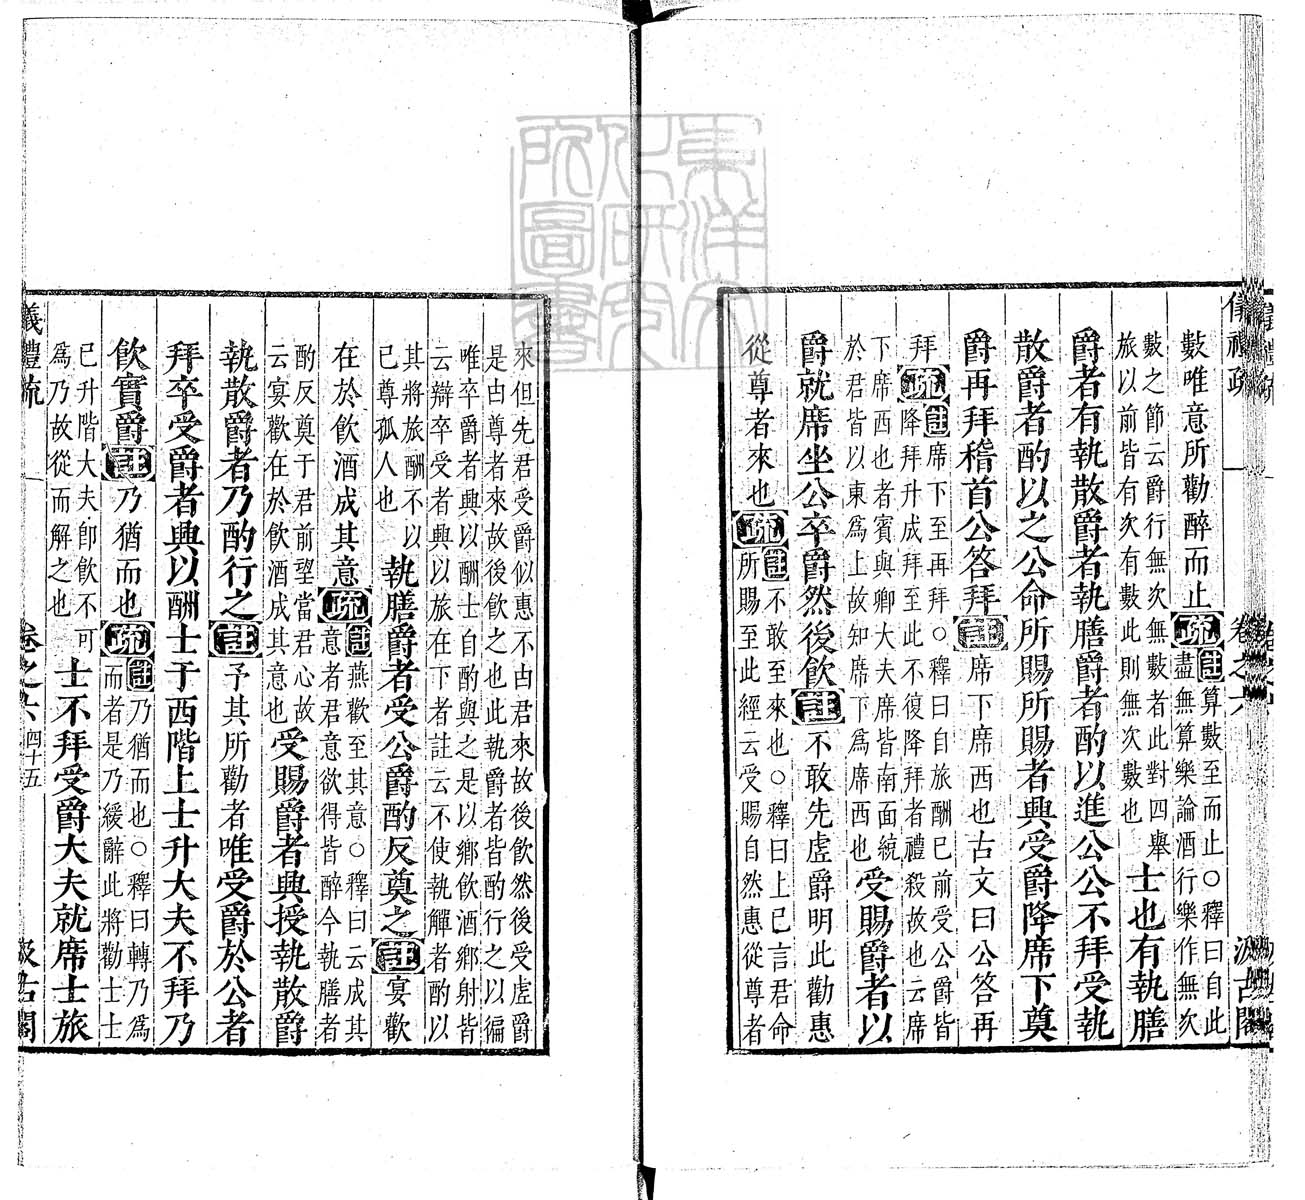 儀禮疏 卷之六 汲古閣
數唯意所勸醉而止疏註算數至而止○釋曰自此
盡無算樂論酒行樂作無次
數之節云爵行無次無數者此對四舉
旅以前皆有次有數此則無次數也
士也有執膳
爵者有執散爵者執膳爵者酌以進公公不拜受執
散爵者酌以之公命所賜所賜者興受爵降席下奠
爵再拜稽首公答拜註席下席西也古文曰公答再
拜疏註席下至再拜○釋曰自旅酬已前受公爵皆
降拜升成拜至此不復降拜者禮殺故也云席
下席西也者賓與卿大夫席皆南面統
於君皆以東爲上故知席下爲席西也
受賜爵者以
爵就席坐公卒爵然後飲註不敢先虛爵明此勸惠
從尊者來也疏註不敢至來也○釋曰上已言君命
所賜至此經云受賜自然惠從尊者
來但先君受爵似惠不由君來故後飲然後受虛爵
是由尊者來故後飲之也此執爵者皆酌行之以徧
唯卒爵者興以酬士自酌與之是以鄉飲酒鄉射皆
云辯卒受者興以旅在下者註云不使執觶者酌以
其將旅酬不以
己尊孤人也
執膳爵者受公爵酌反奠之註宴歡
在於飲酒成其意疏註燕歡至其意○釋曰云成其
意者君意欲得皆醉今執膳者
酌反奠于君前望當君心故
云宴歡在於飲酒成其意也
受賜爵者興授執散爵
執散爵者乃酌行之註予其所勸者唯受爵於公者
拜卒受爵者興以酬士于西階上士升大夫不拜乃
飲實爵註乃猶而也疏註乃猶而也○釋曰轉乃爲
而者是乃緩辭此將勸士士
已升階大夫卽飲不可
爲乃故從而解之也
士不拜受爵大夫就席士旅
儀禮疏 卷之六 四十五 汲古閣